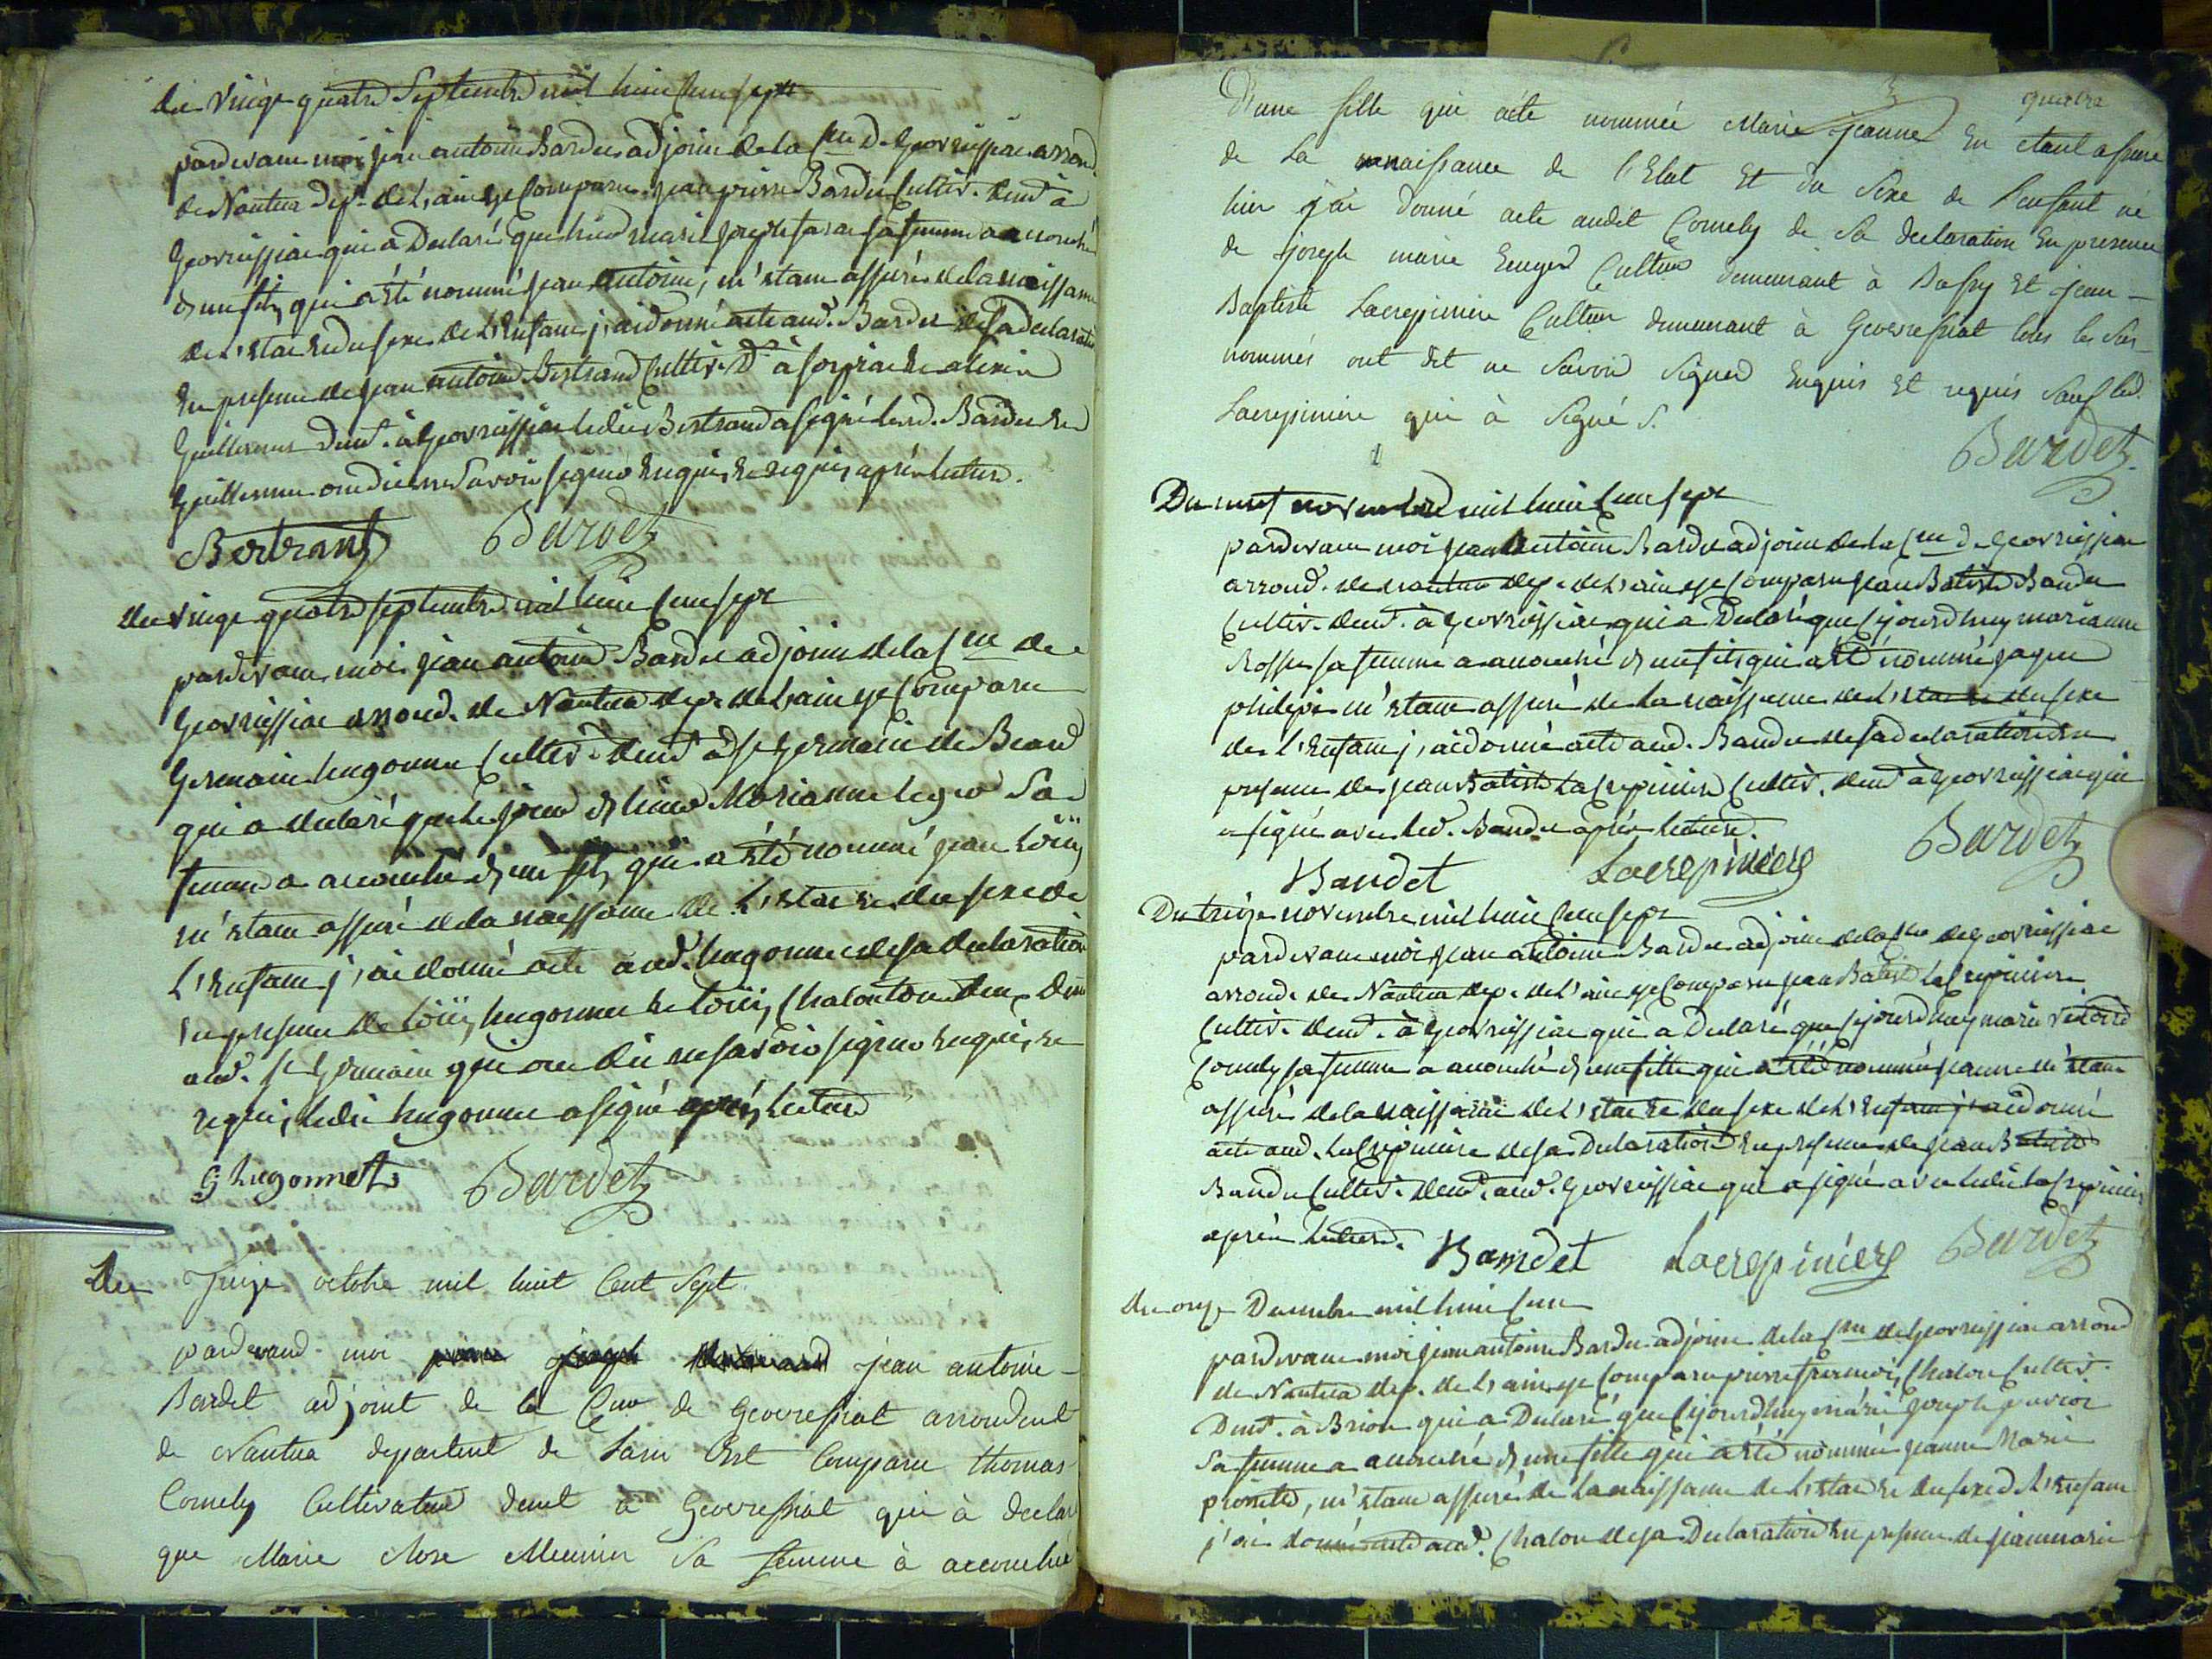 du vingt quatre Septembre mil huit Cent sept
pardevant moi jean antoine Bardet adjoint de la Cne De Geovreissiat arrond
de Nantua dep. de L'ain est Comparu jean pierre Bardet Cultiv. demt à
Geovreissiat qui a Declaré que hier marie josephe sa femme a accouché
d'un fils qui a été nommé jean antoine, m'étant assuré de la naissance
de l'état et du sexe de L'Enfant j'ai donné acte aud. Bardet de sa declaration
En presence de jean antoine Bertrand Cultiv. Dt à et alexis
Guillermet demt. à Geovreissiat ledit Bertrand a signé led. Bardet et
Guillermet ont dit ne Savoir signer Enquis et requis après lecture.
Bertrant Bardet
du vingt quatre septembre mil huit Cent sept
pardevant moi jean antoine Bardet adjoint de la Cne de
Geovreissiat arrond. de Nantua dep. de L'ain est Comparu
Germain hugonnet Cultiv. demt à St Germain de Beard
qui a declaré que le jour d'hier Marianne leger Sa
femme a accouché d'un fils qui a été nommé jean Loüis
m'étant assuré de la naissance de L'état et du sexe de
L'Enfant j'ai donné acte aud. hugonnet de sa declaration
En presence de Loüis hugonnet et Loüis Chalonton deux Dmt
aud. St Germain qui ont dit ne savoir signer Enquis et
requis, ledit hugonnet a signé après lecture
G hugonnet Bardet
Du Treize octobre mil huit Cent Sept
pardevand moi jean antoine
Bardet adjoint de la Cne de Geovressiat arrondent
de Nantua departent de Lain Est Comparu thomas
Comely Cultivateur demt à Geovressiat qui à declaré
que Marie Rose Meunier Sa femme à accouché
quatre
D'une fille qui aété nommée Marie jeanne En étant assuré
de La naissance de l'Etat Et du Sexe de L'enfant né
hier j'ai donné acte audit Comely de Sa declaration En presence
de joseph marie Cultiur demeurant à Et jean
Baptiste Lacrepiniere Cultiur demeurant à Geovressiat tous les Sus
nommés ont dit ne Savoir Signer Enquis Et requis Sauf led.
Lacrepiniere qui à Signé S.
Bardet
Du neuf novembre mil huit Cent sept
pardevant moi jean antoine Bardet adjoint de la Cne de Geovreissiat
arrond. de nantua dep. de L'ain est Comparu jean Batiste Bandet
Cultiv. demt. à Geovreissiat qui a Declaré que Cejourd'huy marianne
Rosset sa femme a accouché d'un fils qui a été nommé jaque
philipe m'étant assuré de la naissance de L'état et du sexe
de L'Enfant j'ai donné acte aud. Bandet de sa declaration En
presence de jean Batiste LaCrepiniere Cultiv. demt à Geovreissiat qui
a signé avec led. Bandet après lecture.
Bandet Lacrepiniere Bardet
Du treize novembre mil huit Cent sept
pardevant moi jean antoine Bardet adjoint de la Cne de Geovreissiat
arrond. de Nantua dep. de L'ain est Comparu jean Batiste LaCrepiniere
Cultiv. demt. à Geovreissiat qui a Declaré que Cejourd'huy marie
Comely sa femme a accouché d'une fille qui a été nommée jeanne m'étant
assuré de la naissance de L'état et du sexe de L'Enfant j'ai donné
acte aud. LaCrepiniere de sa Declaration En presence de jean Batiste
Bandet Cultiv. demt. aud. Geovreissiat qui a signé avec ledit LaCrepiniere
après lecture. Bandet Lacrepiniere Bardet
du onze Decembre mil huit Cent
pardevant moi jean antoine Bardet adjoint de la Cne de Geovreissiat arrond
de Nantua dep. de L'ain est Comparu pierre françois Chalon Cultiv.
Demt. à Brion qui a Declaré que Cejourd'huy marie josephe
Sa femme a accouché d'une fille qui a été nommée jeanne Marie
, m'étant assuré de la naissance de L'état et du sexe de L'Enfant
j'ai donné acte aud. Chalon de sa Declaration En presence de jean marie